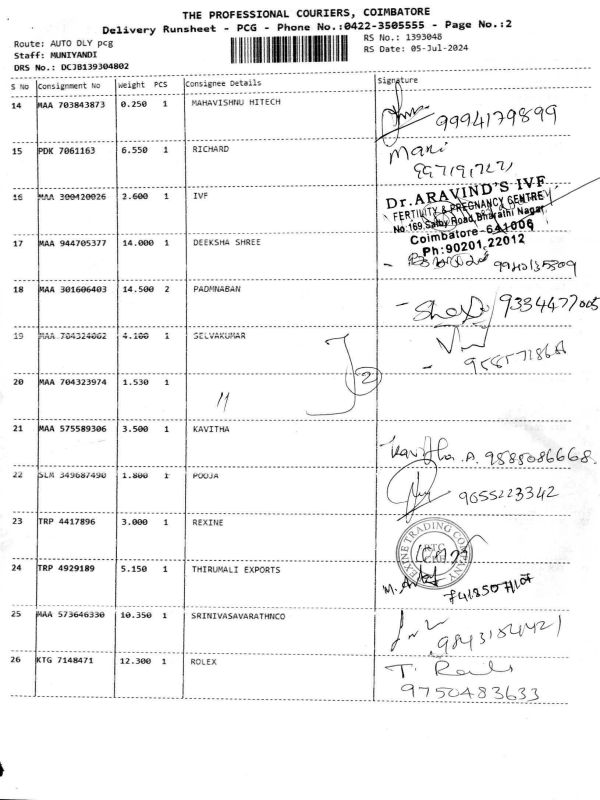 THE PROFESSIONAL COURIERS, COIMBATORE
Delivery Runsheet - PCG - Phone No.:0422-3505555 - Page No.:2
Route: AUTO DLY pcg
RS No.: 1393048
Staff: MUNIYANDI
RS Date: 05-Jul-2024
DRS No.: DCJB139304802
S No Consignment No Weight PCS Consignee Details Signature
14 MAA 703843873 0.250 1 MAHAVISHNU HITECH
9994179899
15 PDK 7061163 6.550 1 RICHARD
Mani
16 MAA 300420026 2.600 1 IVF
Dr.ARAVIND'S IVF
FERTILITY & PREGNANCY CENTRE
No:169,Sathy Road,Bharathi Nagar,
Coimbatore-641006
Ph:90201,22012
17 MAA 944705377 14.000 1 DEEKSHA SHREE
18 MAA 301606403 14.500 2 PADMNABAN
9334477005
19 MAA 704324062 4.100 1 SELVAKUMAR
20 MAA 704323974 1.530 1 "
2
21 MAA 575589306 3.500 1 KAVITHA
Kavitha.A. 9585086668.
22 SLM 349687490 1.800 1 POOJA
9655223342
23 TRP 4417896 3.000 1 REXINE
24 TRP 4929189 5.150 1 THIRUMALI EXPORTS
25 MAA 573646330 10.350 1 SRINIVASAVARATHNCO
26 KTG 7148471 12.300 1 ROLEX
9750483633